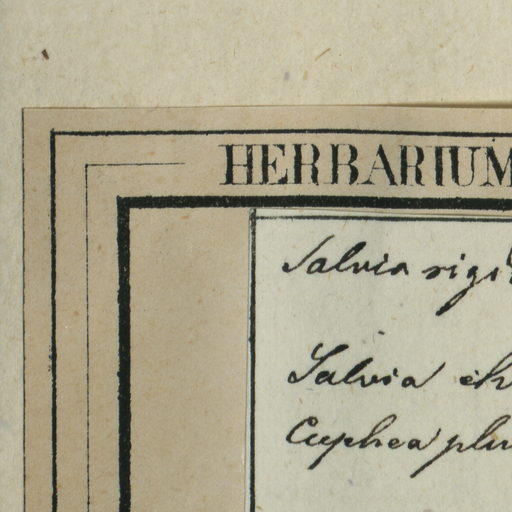 HERBARIUM
Salvia rigi
Salvia
Cuphea